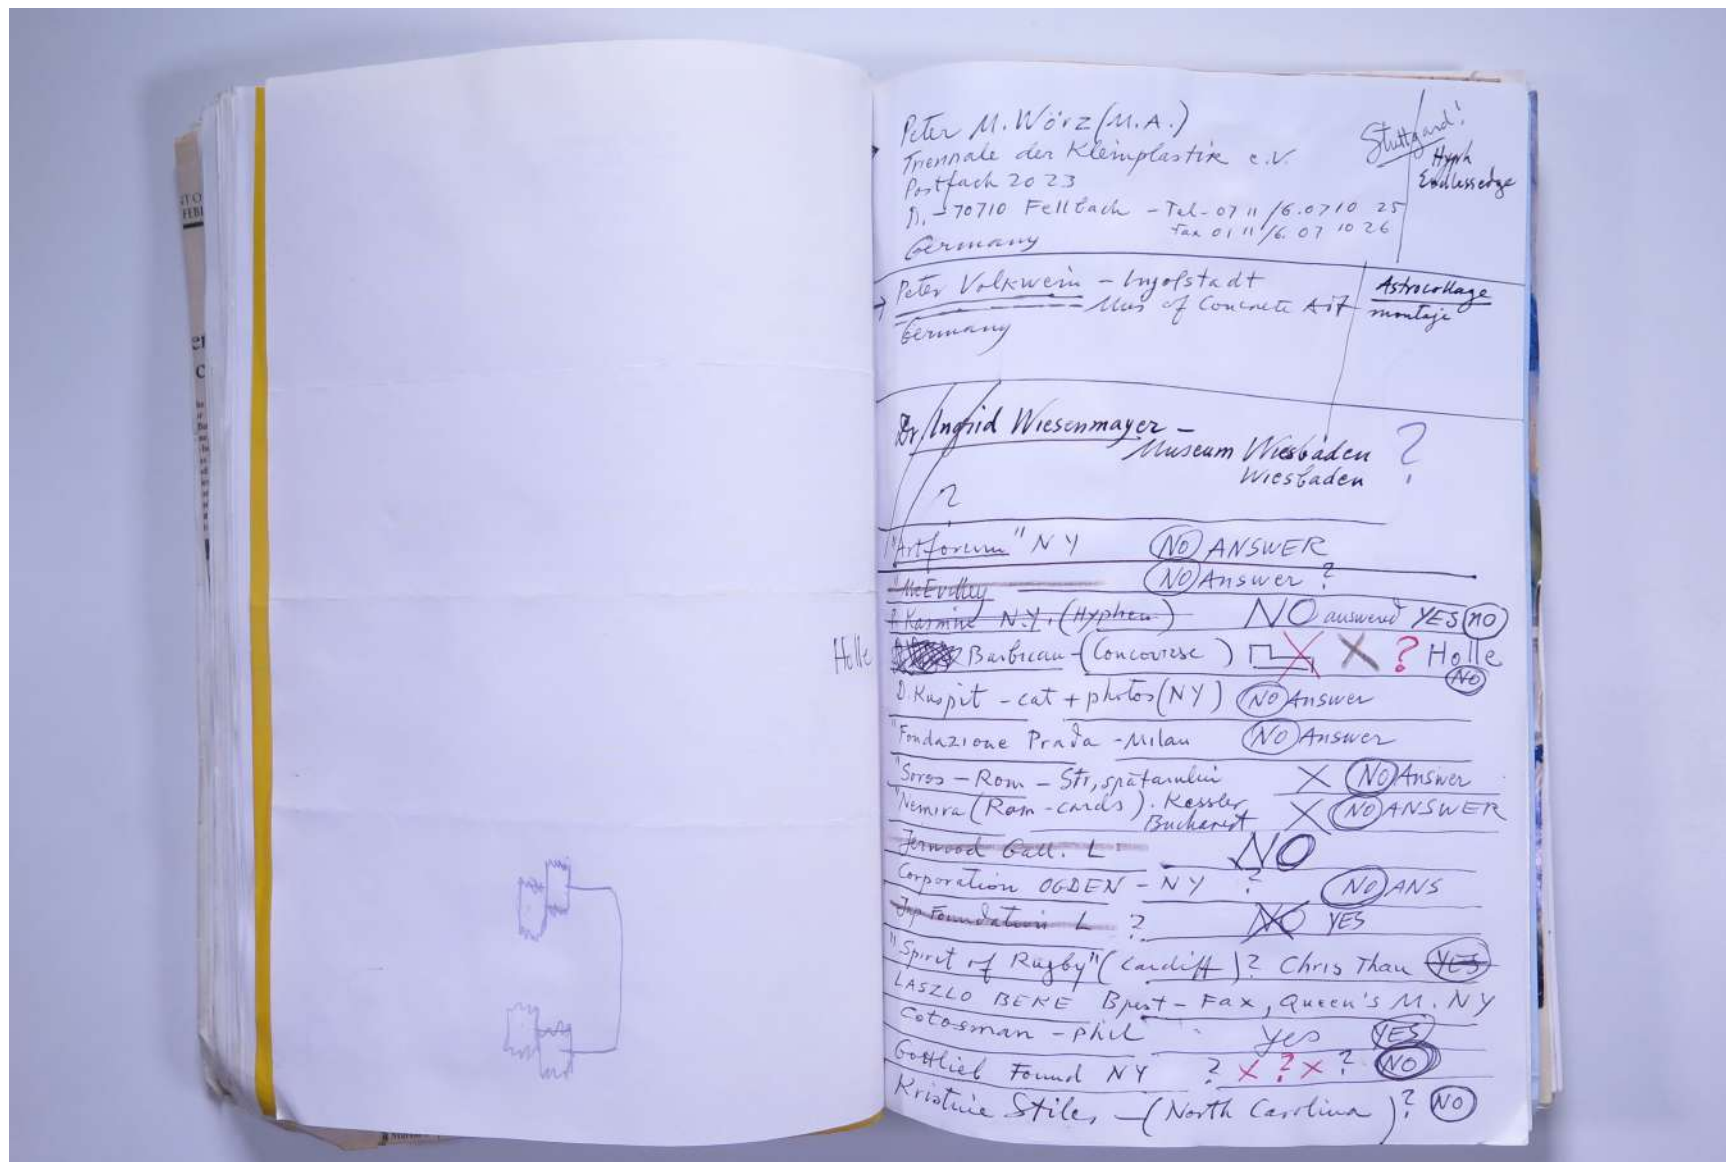 Peter M. Wörz (M.A.)
Triennale der Kleinplastik e.V.
Postfach 2023
D. - 70710 Fellbach - Tel - 07 11 /6.0710 25
Fax 01 11 /6. 07 10 26
Germany
Stuttgard!
Hyph
Endlessedge
Peter Volkwein - Ingolstadt
Mus of Concrete Art
Germany
Astrocollage
montaje
Dr Ingrid Wiesenmayer -
Museum Wiesbaden ?
Wiesbaden
?
"Artforum" NY NO ANSWER
"McEvilley NO Answer ?
Kasmine N.Y. (Hyphen) NO answered YES no
Holle Barbican - (Concourse) X X ? Holle
NO
D. Kuspit - cat + photos (NY) NO Answer
"Fondazione Prada - Milan NO Answer
"Soros - Rom - Str, spătarului X NO Answer
"Nemira (Rom - cards). Kessler X NO ANSWER
Bucharest
Jerwood Gall. L NO
Corporation OGDEN - NY ? NO ANS
Jap Foundation L ? NO YES
"Spirit of Rugby" (Cardiff)? Chris Thau YES
LASZLO BEKE Bpest - Fax, Queen's M. NY
Cotosman - phil yes YES
Gottlieb Found NY ? X ? X ? NO
Kristine Stiles - (North Carolina)? NO